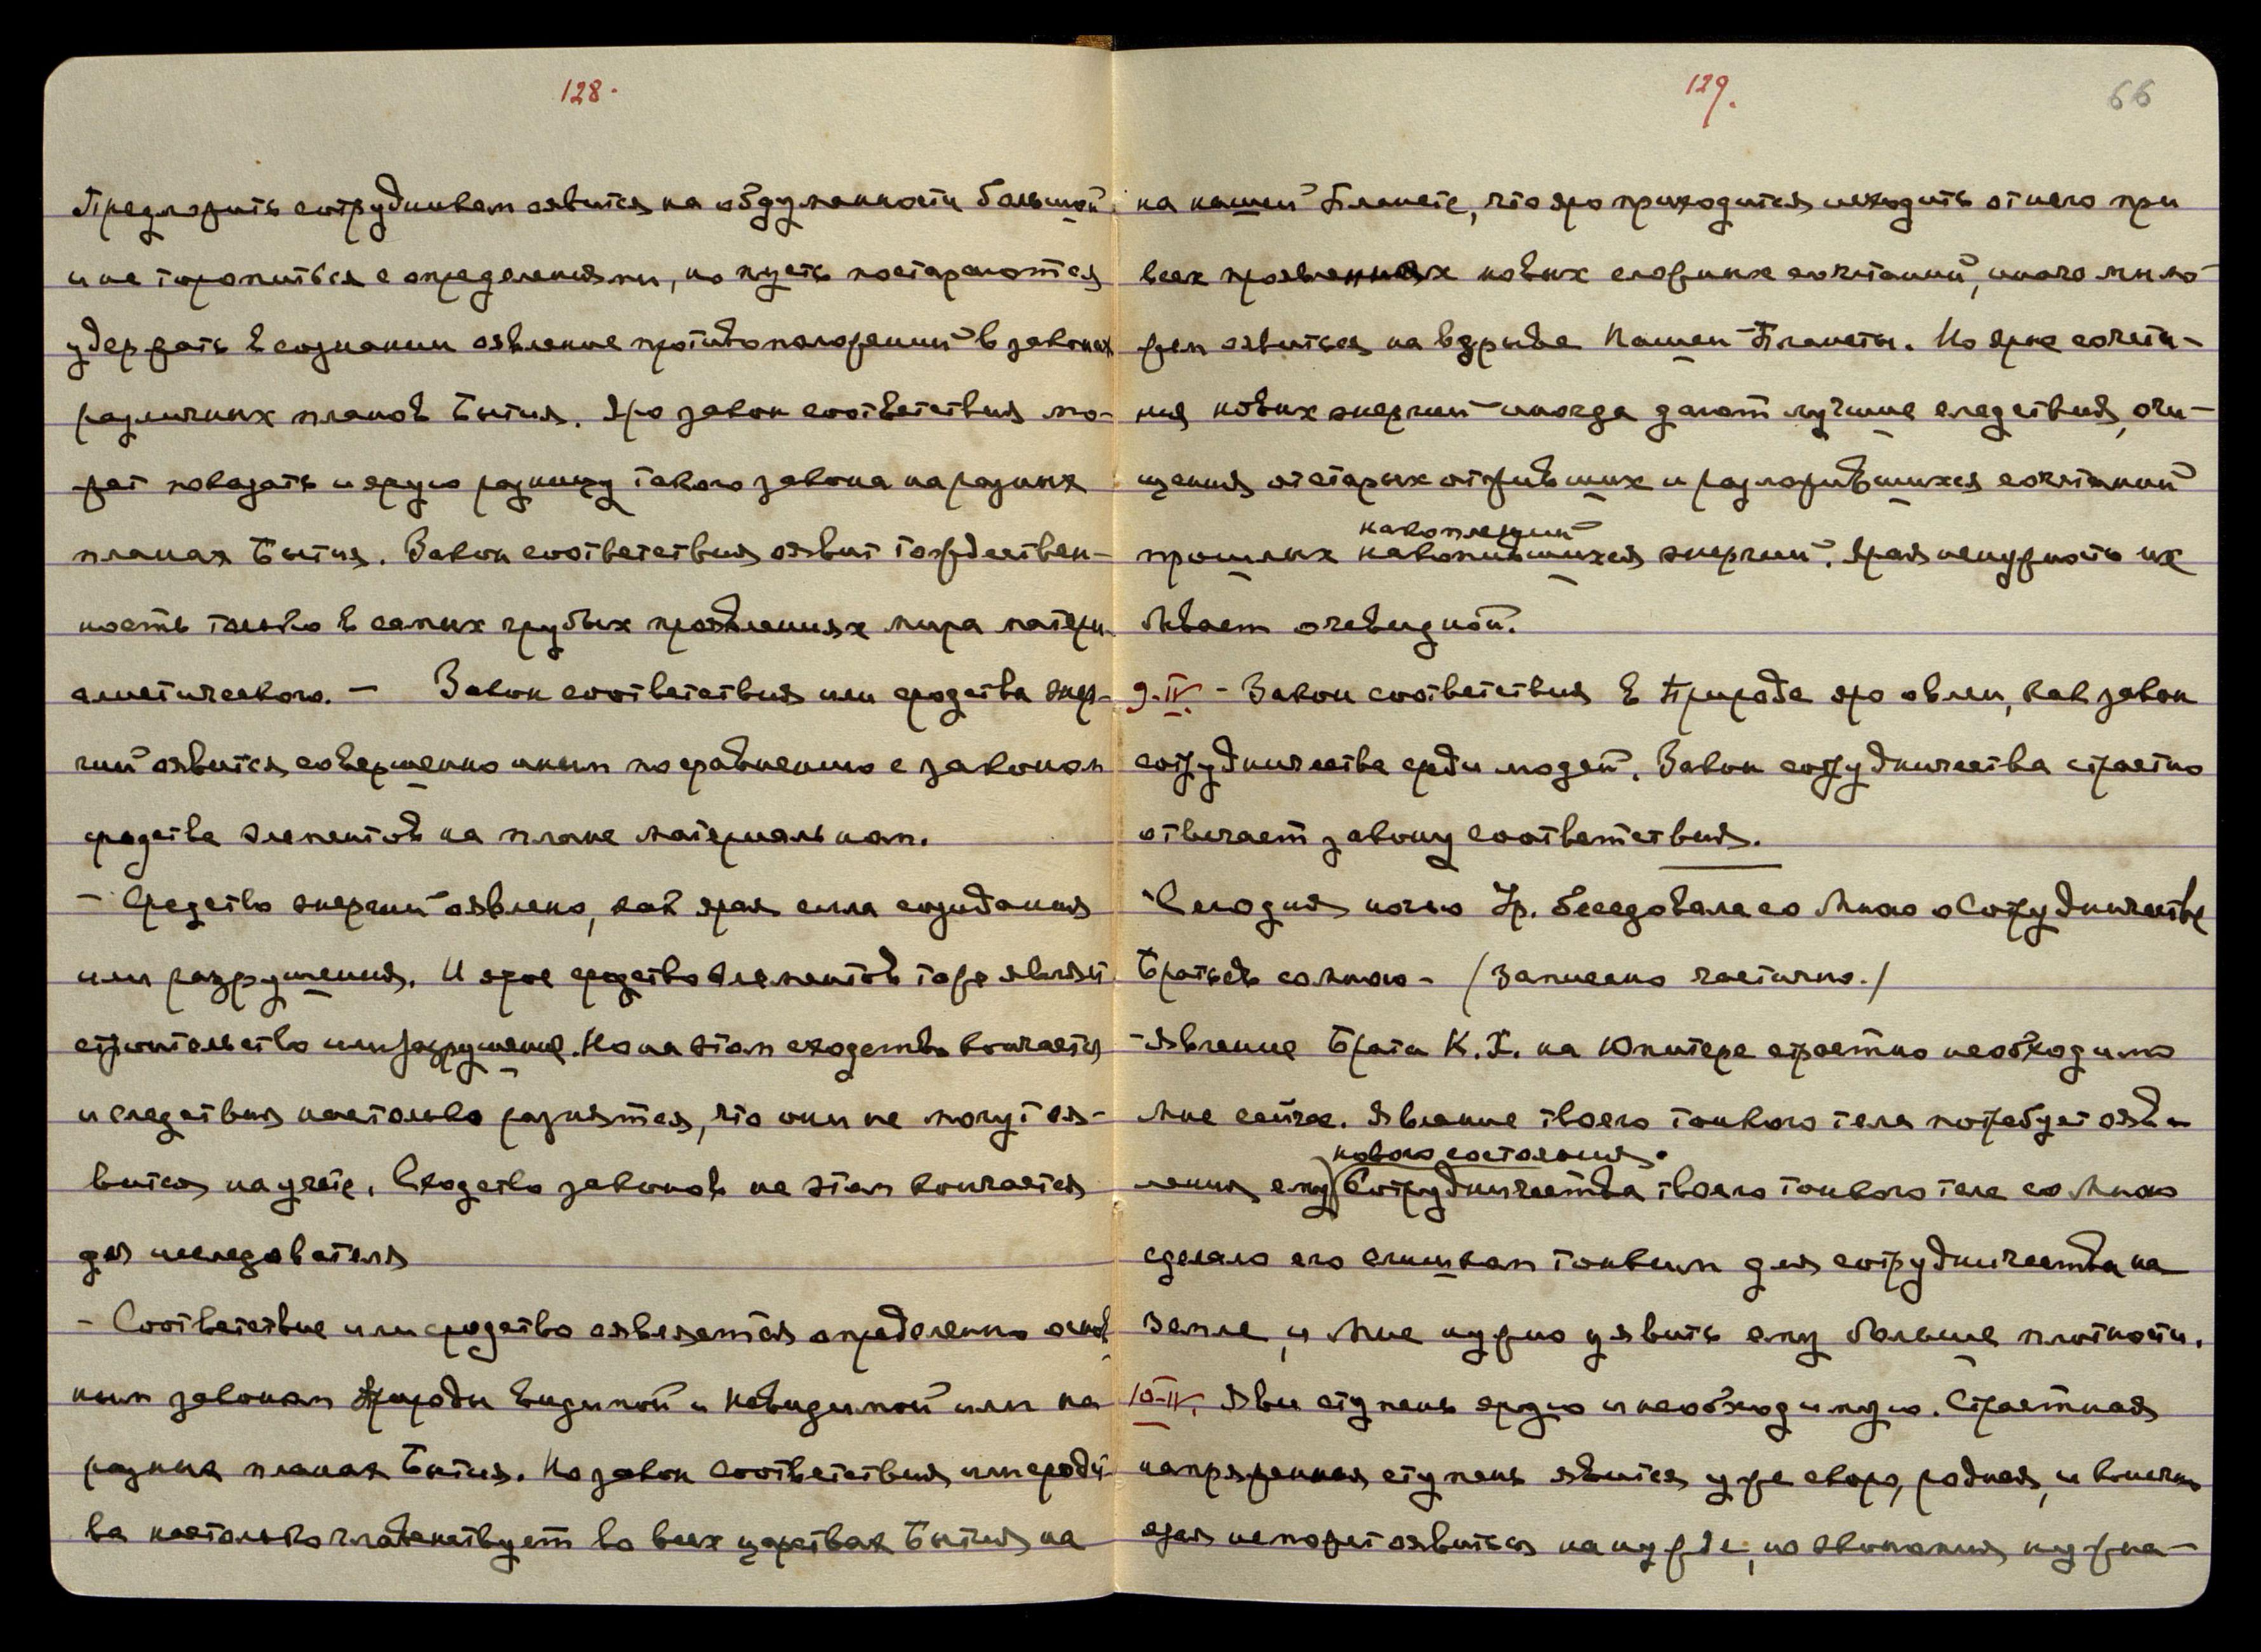 128.
Предложить сотрудникам оявится на обдуманности большой
и не торопиться с определениями, но пусть постараются
удержать в сознании оявление противоположений в законах
различных планов Бытия. Яро закон соответствия мо-
жет показать и ярую разницу такого закона на разных
планах Бытия. Закон соответствия оявит тождествен-
ность только в самых грубых проявлениях мира матери-
алистического. — Закон соответствия или сродства энер-
гий оявится совершенно иным по сравнению с законом
сродства элементов на плане материальном.
— Сродство энергий оявлено, как ярая сила созидания
или разрушения. И ярое сродство элементов тоже являет
строительство или разрушение. Но на этом сходство кончается
и следствия настолько разнятся, что они не могут оя-
виться на учете. Сходство законов на этом кончается
для исследователя
— Соответствие или сродство оявляется определенно основ-
ным законом Природы видимой и невидимой или на
разных планах Бытия. Но закон соответствия или сродст-
ва настолько главенствует во всех царствах Бытия на
129.
66
на нашей Планете, что яро приходится исходить от него при
всех проявлениях новых сложных сочетаний, иначе мы мо-
жем оявиться на взрыве нашей Планеты. Но ярые сочета-
ния новых энергий иногда дают лучшие следствия, очи-
щения от старых отживших и разложившихся сочетаний
накоплений
прошлых накопившихся энергий. Ярая ненужность их
бывает очевидной.
9-IV. - Закон соответствия в Природе яро явлен, как закон
сотрудничества среди людей. Закон сотрудничества страстно
отвечает закону соответствия.
Сегодня ночью Ур. беседовала со Мною о Сотрудничестве
Братьев со Мною - /Записано частично./
- Явление Брата К.Х. на Юпитере страстно необходимо
Мне сейчас. Явление твоего тонкого тела потребует оявл
нового состояния.
ления ему) Сотрудничества твоего тонкого тела со Мною
сделало его слишком тонким для сотрудничества на
Земле, и Мне нужно уявить ему больше плотности.
10-IV. Яви ступень ярую и необходимую. Страстная
напряженная ступень явится уже скоро, родная, и конечно
ярая не может оявиться на нужде, но экономия нужна